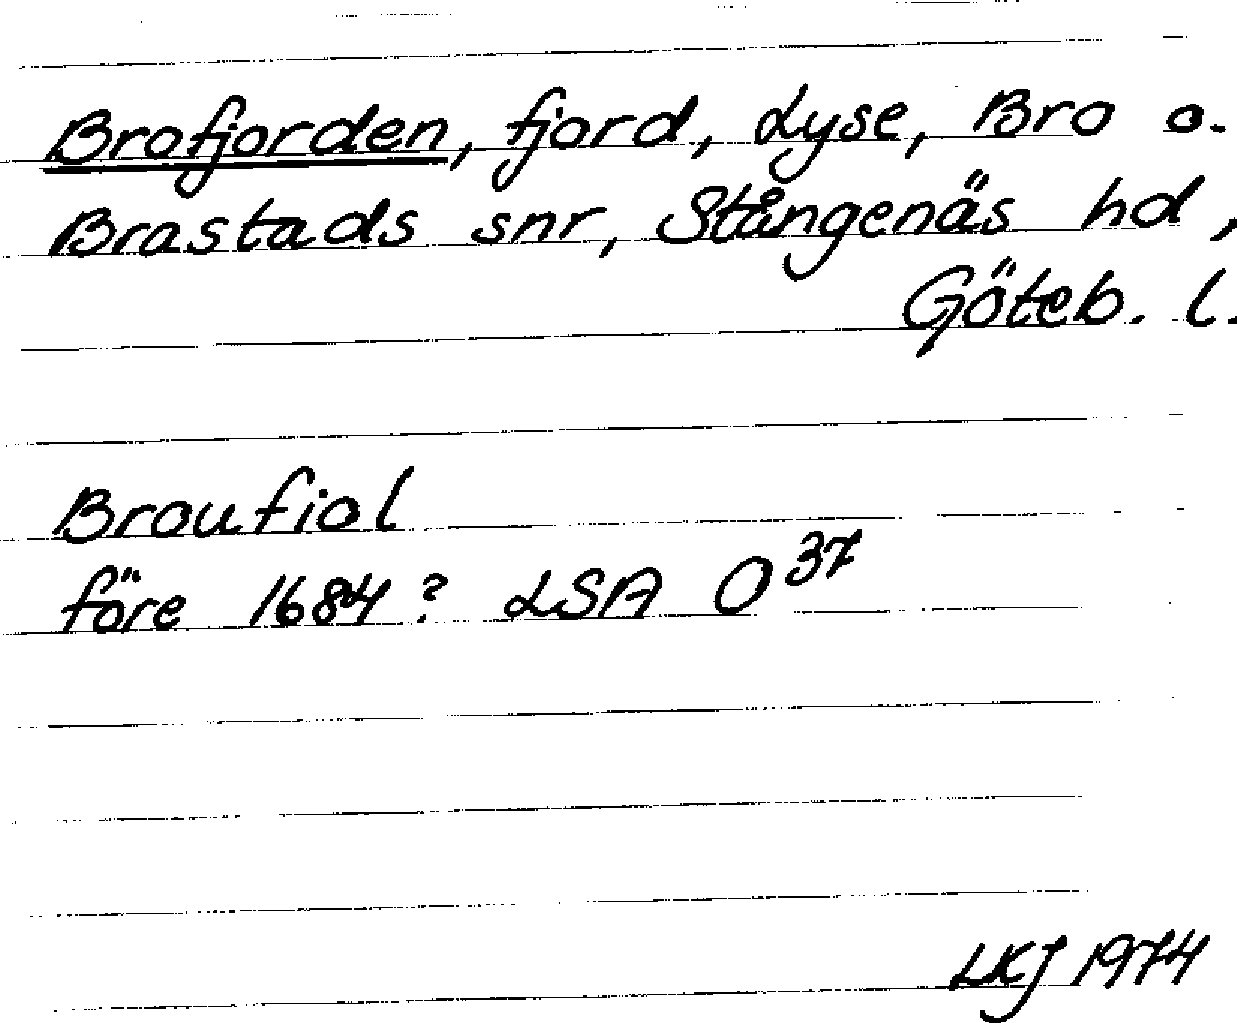 Brofjorden, fjord, Lyse, Bro o.
Brastads snr, Stångenäs hd,
Göteb. l.
Broufiol
före 1684? LSA O37
LKJ 1974